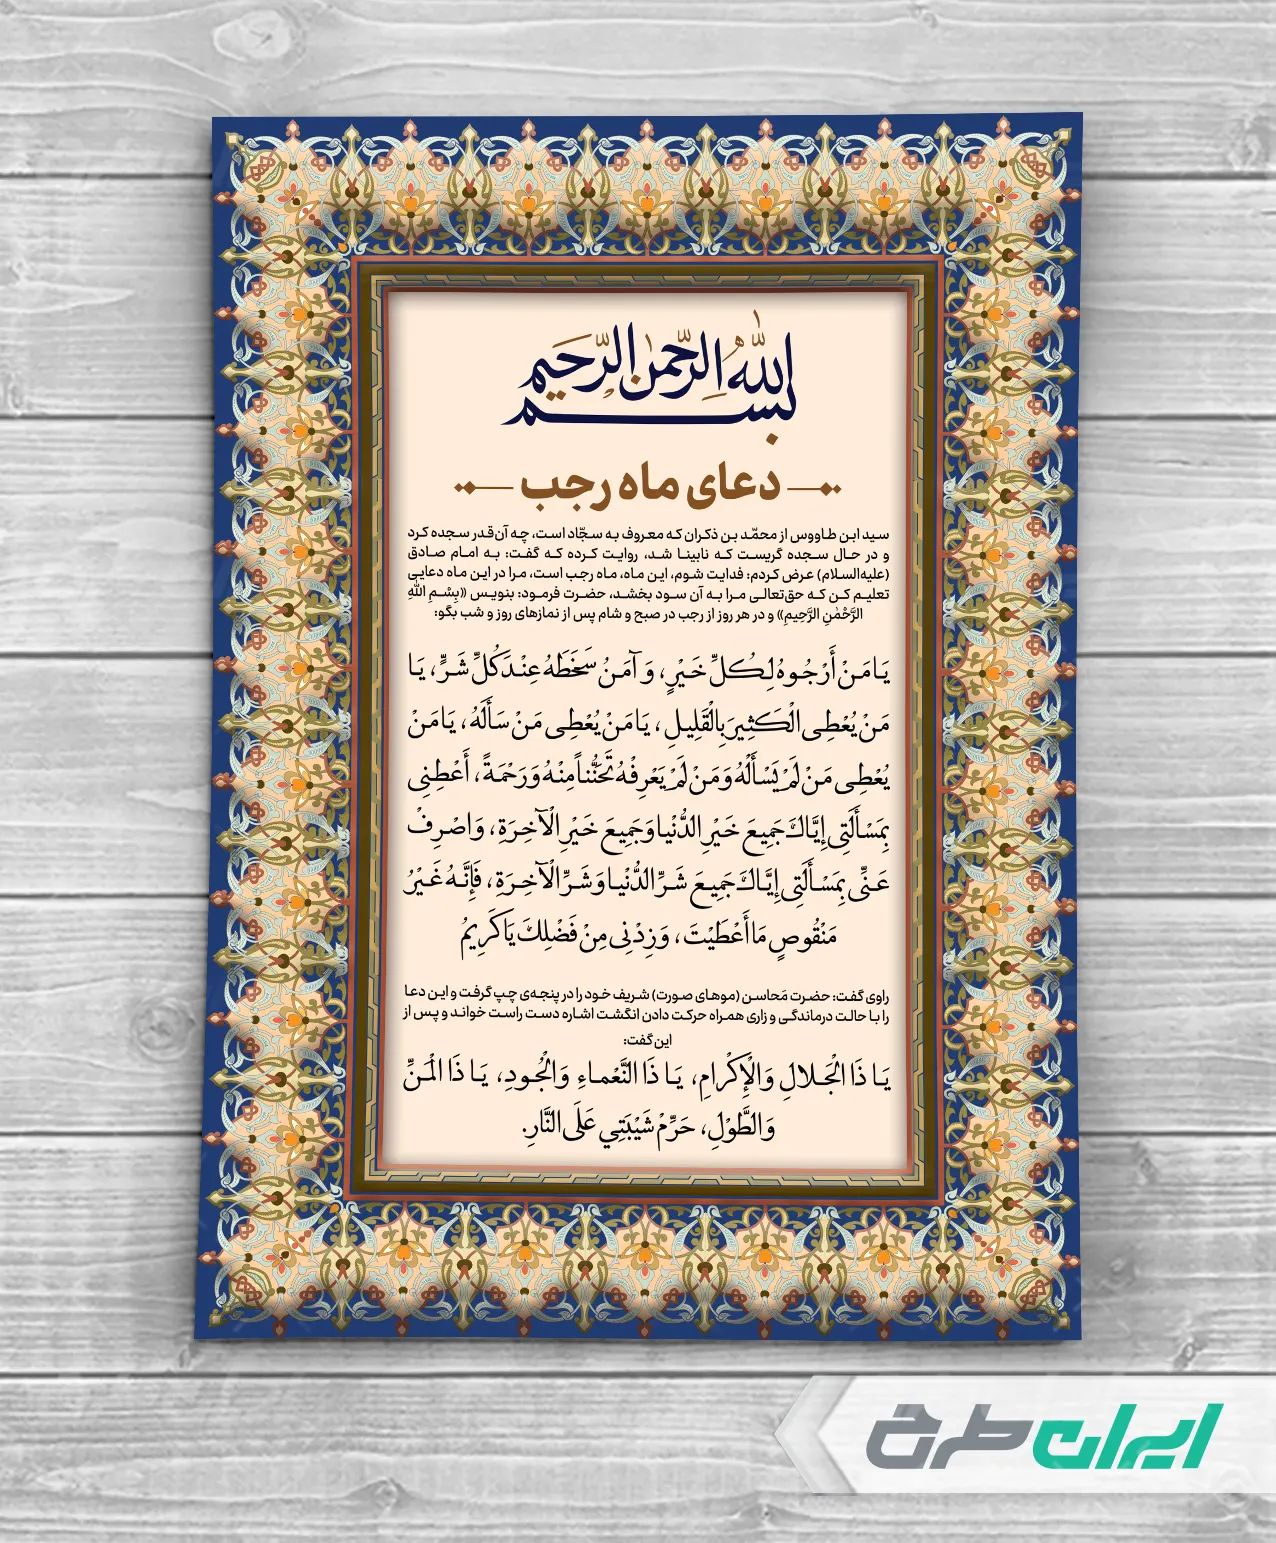 بسم الله الرحمن الرحیم
دعای ماه رجب
سید ابن طاووس از محمّد بن ذکران که معروف به سجّاد است، چه آن‌قدر سجده کرد
و در حال سجده گریست که نابینا شد، روایت کرده که گفت: به امام صادق
(علیه‌السلام) عرض کردم: فدایت شوم، این ماه، ماه رجب است، مرا در این ماه دعایی
تعلیم کن که حق‌تعالی مرا به آن سود بخشد، حضرت فرمود: بنویس «بِسْمِ اللّٰهِ
الرَّحْمٰنِ الرَّحِیمِ» و در هر روز از رجب در صبح و شام پس از نمازهای روز و شب بگو:
یَا مَنْ أَرْجُوهُ لِكُلِّ خَیْرٍ، وَ آمَنُ سَخَطَهُ عِنْدَ كُلِّ شَرٍّ، یَا
مَنْ یُعْطِی الْكَثِیرَ بِالْقَلِیلِ، یَا مَنْ یُعْطِی مَنْ سَأَلَهُ، یَا مَنْ
یُعْطِی مَنْ لَمْ یَسْأَلْهُ وَ مَنْ لَمْ یَعْرِفْهُ تَحَنُّناً مِنْهُ وَ رَحْمَةً، أَعْطِنِی
بِمَسْأَلَتِی إِیَّاكَ جَمِیعَ خَیْرِ الدُّنْیا وَ جَمِیعَ خَیْرِ الْآخِرَةِ، وَ اصْرِفْ
عَنِّی بِمَسْأَلَتِی إِیَّاكَ جَمِیعَ شَرِّ الدُّنْیا وَ شَرِّ الْآخِرَةِ، فَإِنَّهُ غَیْرُ
مَنْقُوصٍ مَا أَعْطَیْتَ، وَ زِدْنِی مِنْ فَضْلِكَ یَا كَرِیمُ
راوی گفت: حضرت مَحاسن (موهای صورت) شریف خود را در پنجه‌ی چپ گرفت و این دعا
را با حالت درماندگی و زاری همراه حرکت دادن انگشت اشاره دست راست خواند و پس از
این گفت:
یَا ذَا الْجَلالِ وَالْإِكْرامِ، یَا ذَا النَّعْماءِ وَالْجُودِ، یَا ذَا الْمَنِّ
وَالطَّوْلِ، حَرِّمْ شَیْبَتِي عَلَی النَّارِ.
ایران طرح